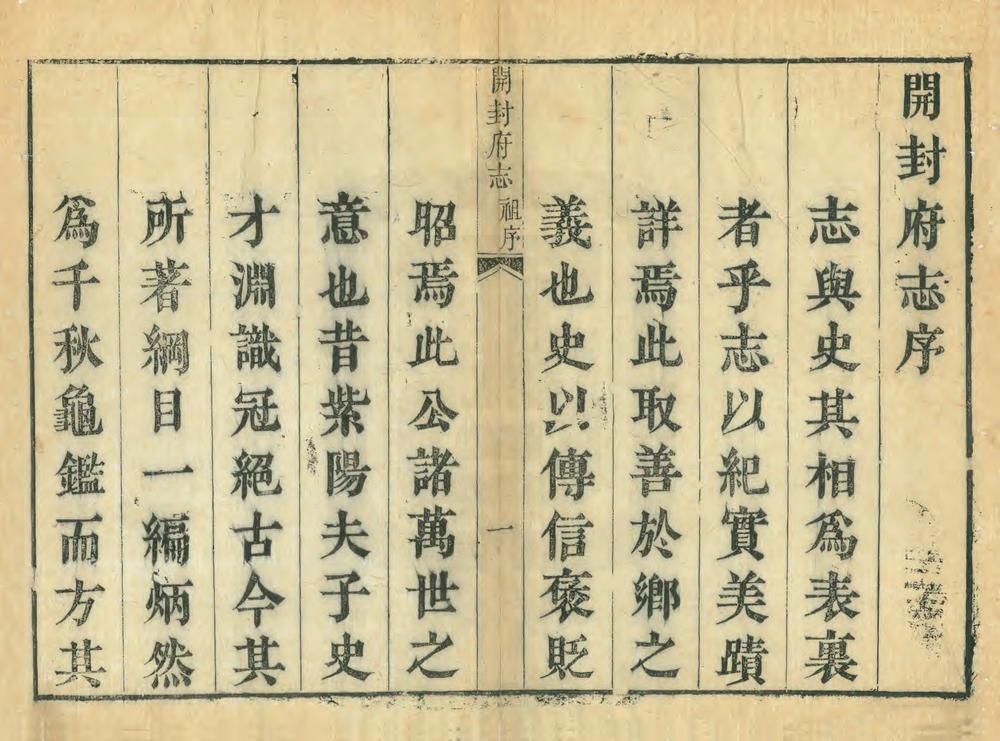 開封府志序
志與史其相爲表裏
者乎志以紀實美蹟
詳焉此取善於鄉之
義也史以傳信褒貶
開封府志 祖序 一
昭焉此公諸萬世之
意也昔紫陽夫子史
才淵識冠絕古今其
所著綱目一編炳然
爲千秋龜鑑而方其